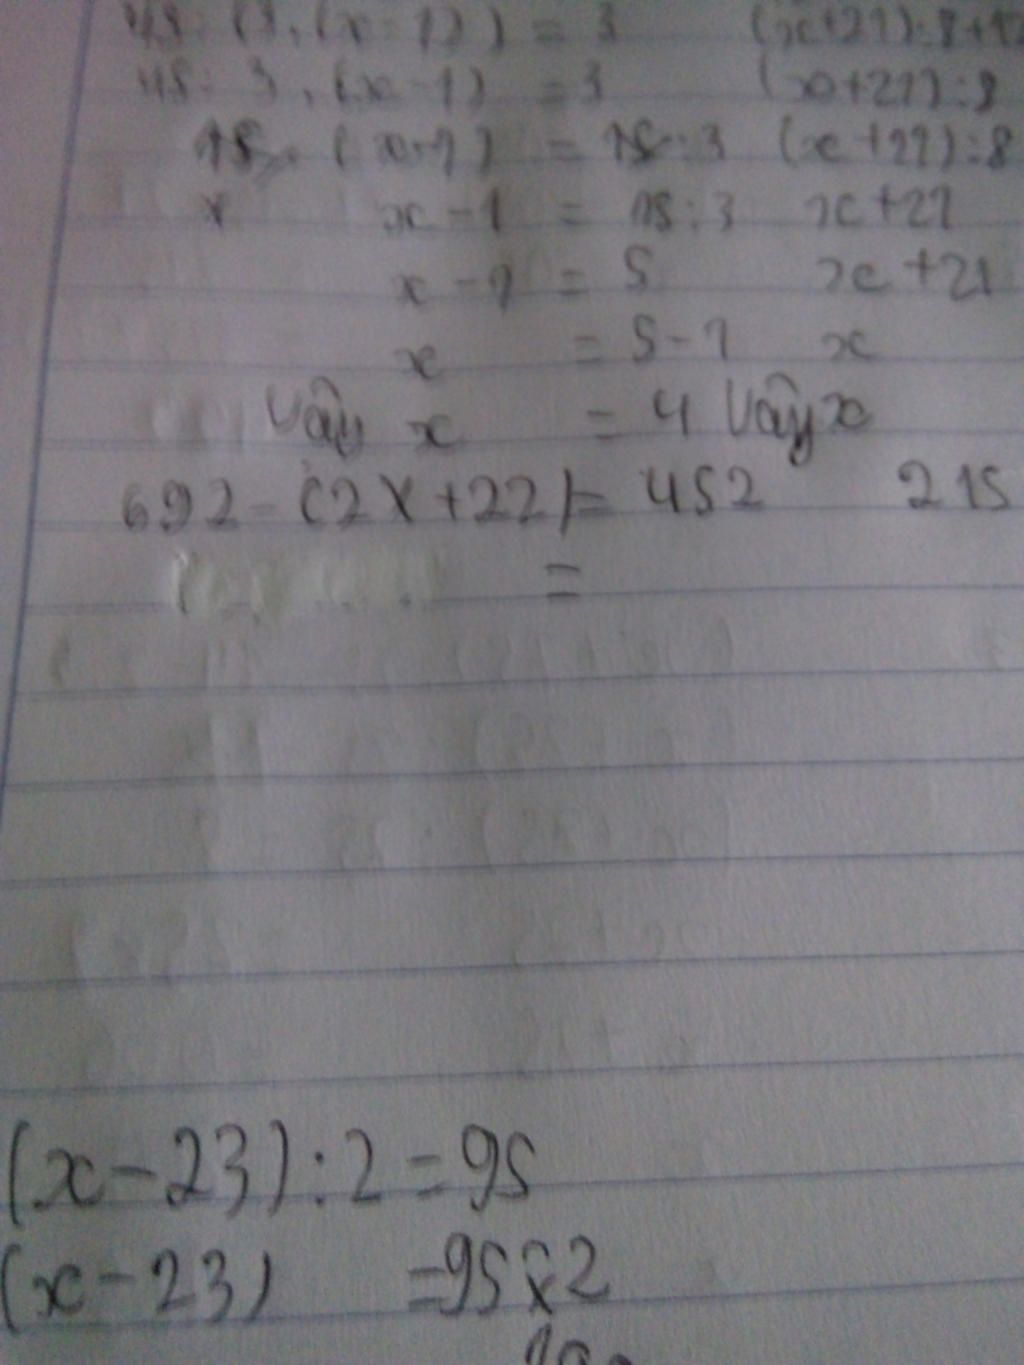 45: (3.(x-1)) = 3 (x+21):8+12
45: 3.(x-1) = 3 (x+21):8
15.(x-1) = 15:3 (x+21):8
x x-1 = 15:3 x+21
x-1 = 5 x+21
x = 5-1 x
Vậy x = 4 Vậy x
692-(2x+22)= 452 215
=
(x-23):2=95
(x-23) =95x2